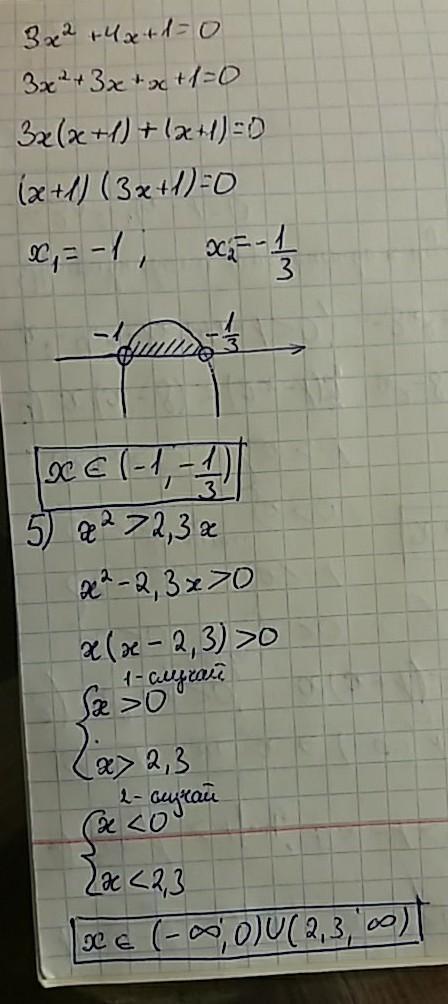 3x² + 4x + 1 = 0
3x² + 3x + x + 1 = 0
3x(x+1) + (x+1) = 0
(x+1) (3x+1) = 0
x₁ = -1 ; x₂ = -1/3
-1 -1/3
x ∈ (-1, -1/3)
5) x² > 2,3x
x² - 2,3x > 0
x(x - 2,3) > 0
1-случай
{ x > 0
x > 2,3
2-случай
{ x < 0
x < 2,3
x ∈ (-∞; 0) ∪ (2,3; ∞)